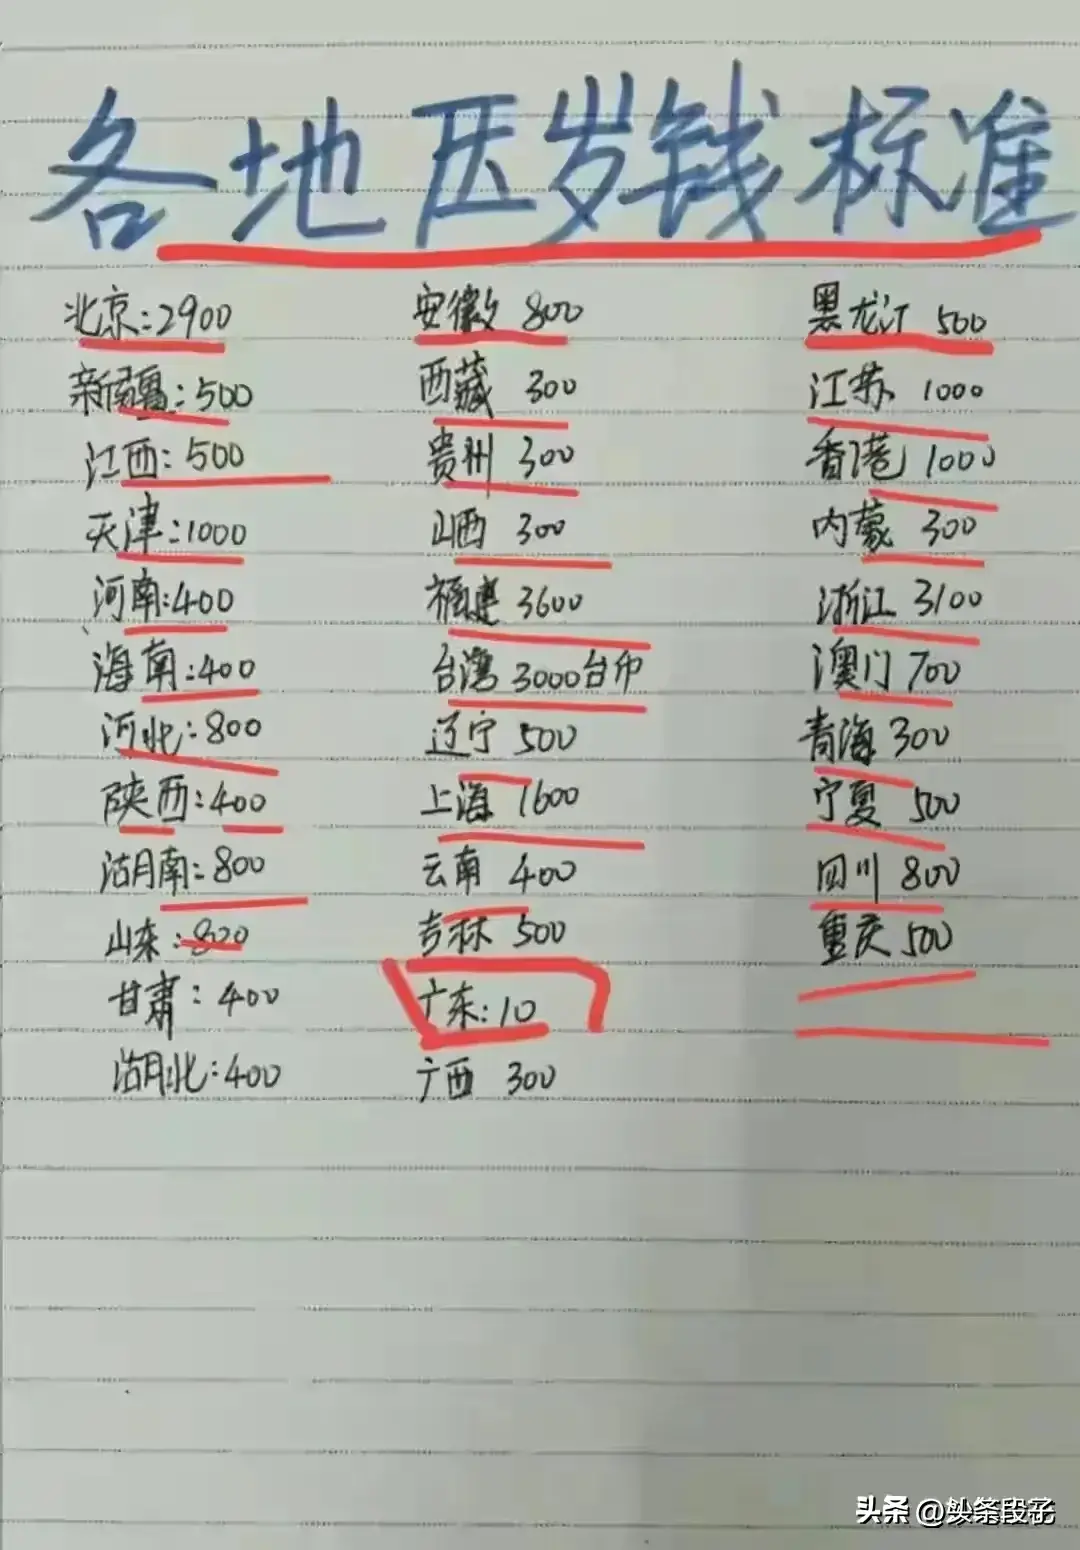 各地压岁钱标准
北京:2900
新疆:500
江西:500
天津:1000
河南:400
海南:400
河北:800
陕西:400
湖南:800
山东:800
甘肃:400
湖北:400
安徽 800
西藏 300
贵州 300
山西 300
福建 3600
台湾 3000台币
辽宁 500
上海 1600
云南 400
吉林 500
广东:10
广西 300
黑龙江 500
江苏 1000
香港 1000
内蒙 300
浙江 3100
澳门 700
青海 300
宁夏 500
四川 800
重庆 500
头条 @妙笔段子